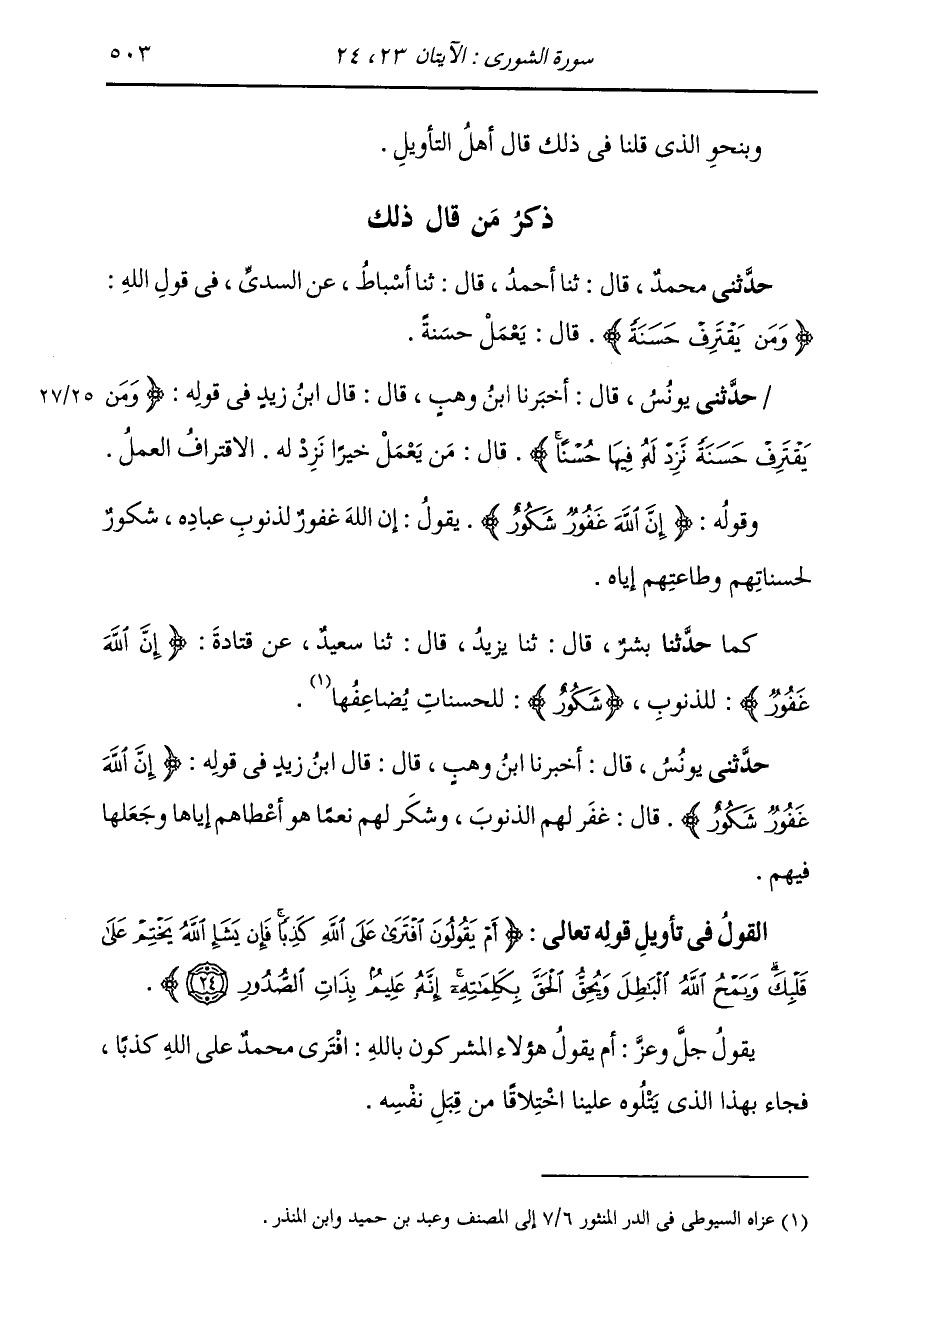 سورة الشورى : الآيتان ٢٣، ٢٤ ٥٠٣
وبنحوِ الذى قلنا فى ذلك قال أهلُ التأويلِ .
ذكرُ مَن قال ذلك
حدَّثنى محمدٌ ، قال : ثنا أحمدُ ، قال : ثنا أسْباطُ ، عن السدىِّ ، فى قولِ اللهِ :
﴿ وَمَن يَقْتَرِفْ حَسَنَةً ﴾ . قال : يَعْمَلْ حسَنةً .
/ حدَّثنى يونُسُ ، قال : أخبَرنا ابنُ وهبٍ ، قال : قال ابنُ زيدٍ فى قولِه : ﴿ وَمَن ٢٧/٢٥
يَقْتَرِفْ حَسَنَةً نَّزِدْ لَهُۥ فِيهَا حُسْنًا ۚ ﴾ . قال : مَن يَعْمَلْ خيرًا نَزِدْ له . الاقترافُ العملُ .
وقولُه : ﴿ إِنَّ ٱللَّهَ غَفُورٌ شَكُورٌ ﴾ . يقولُ : إن اللهَ غفورٌ لذنوبِ عبادِه ، شكورٌ
لحسناتِهم وطاعتِهم إياه .
كما حدَّثنا بشرٌ ، قال : ثنا يزيدُ ، قال : ثنا سعيدٌ ، عن قتادةَ : ﴿ إِنَّ ٱللَّهَ
غَفُورٌ ﴾ : للذنوبِ ، ﴿ شَكُورٌ ﴾ : للحسناتِ يُضاعِفُها(١) .
حدَّثنى يونُسُ ، قال : أخبرنا ابنُ وهبٍ ، قال : قال ابنُ زيدٍ فى قولِه : ﴿ إِنَّ ٱللَّهَ
غَفُورٌ شَكُورٌ ﴾ . قال : غفَر لهم الذنوبَ ، وشكَر لهم نعمًا هو أعْطاهم إياها وجَعَلها
فيهم .
القولُ فى تأويلِ قولِه تعالى : ﴿ أَمْ يَقُولُونَ ٱفْتَرَىٰ عَلَى ٱللَّهِ كَذِبًا ۖ فَإِن يَشَإِ ٱللَّهُ يَخْتِمْ عَلَىٰ
قَلْبِكَ ۗ وَيَمْحُ ٱللَّهُ ٱلْبَٰطِلَ وَيُحِقُّ ٱلْحَقَّ بِكَلِمَٰتِهِۦٓ ۚ إِنَّهُۥ عَلِيمٌۢ بِذَاتِ ٱلصُّدُورِ ٢٤ ﴾ .
يقولُ جلَّ وعزَّ : أم يقولُ هؤلاء المشركون باللهِ : افْتَرى محمدٌ على اللهِ كذبًا ،
فجاء بهذا الذى يَتْلُوه علينا اخْتِلاقًا من قِبَلِ نفْسِه .
(١) عزاه السيوطى فى الدر المنثور ٧/٦ إلى المصنف وعبد بن حميد وابن المنذر .